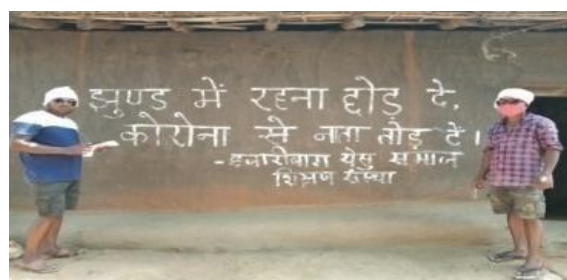 झुण्ड में रहना छोड़ दे,
कोरोना से नाता तोड़ दे।
-हजारीबाग येसु समाज
शिक्षण संस्था